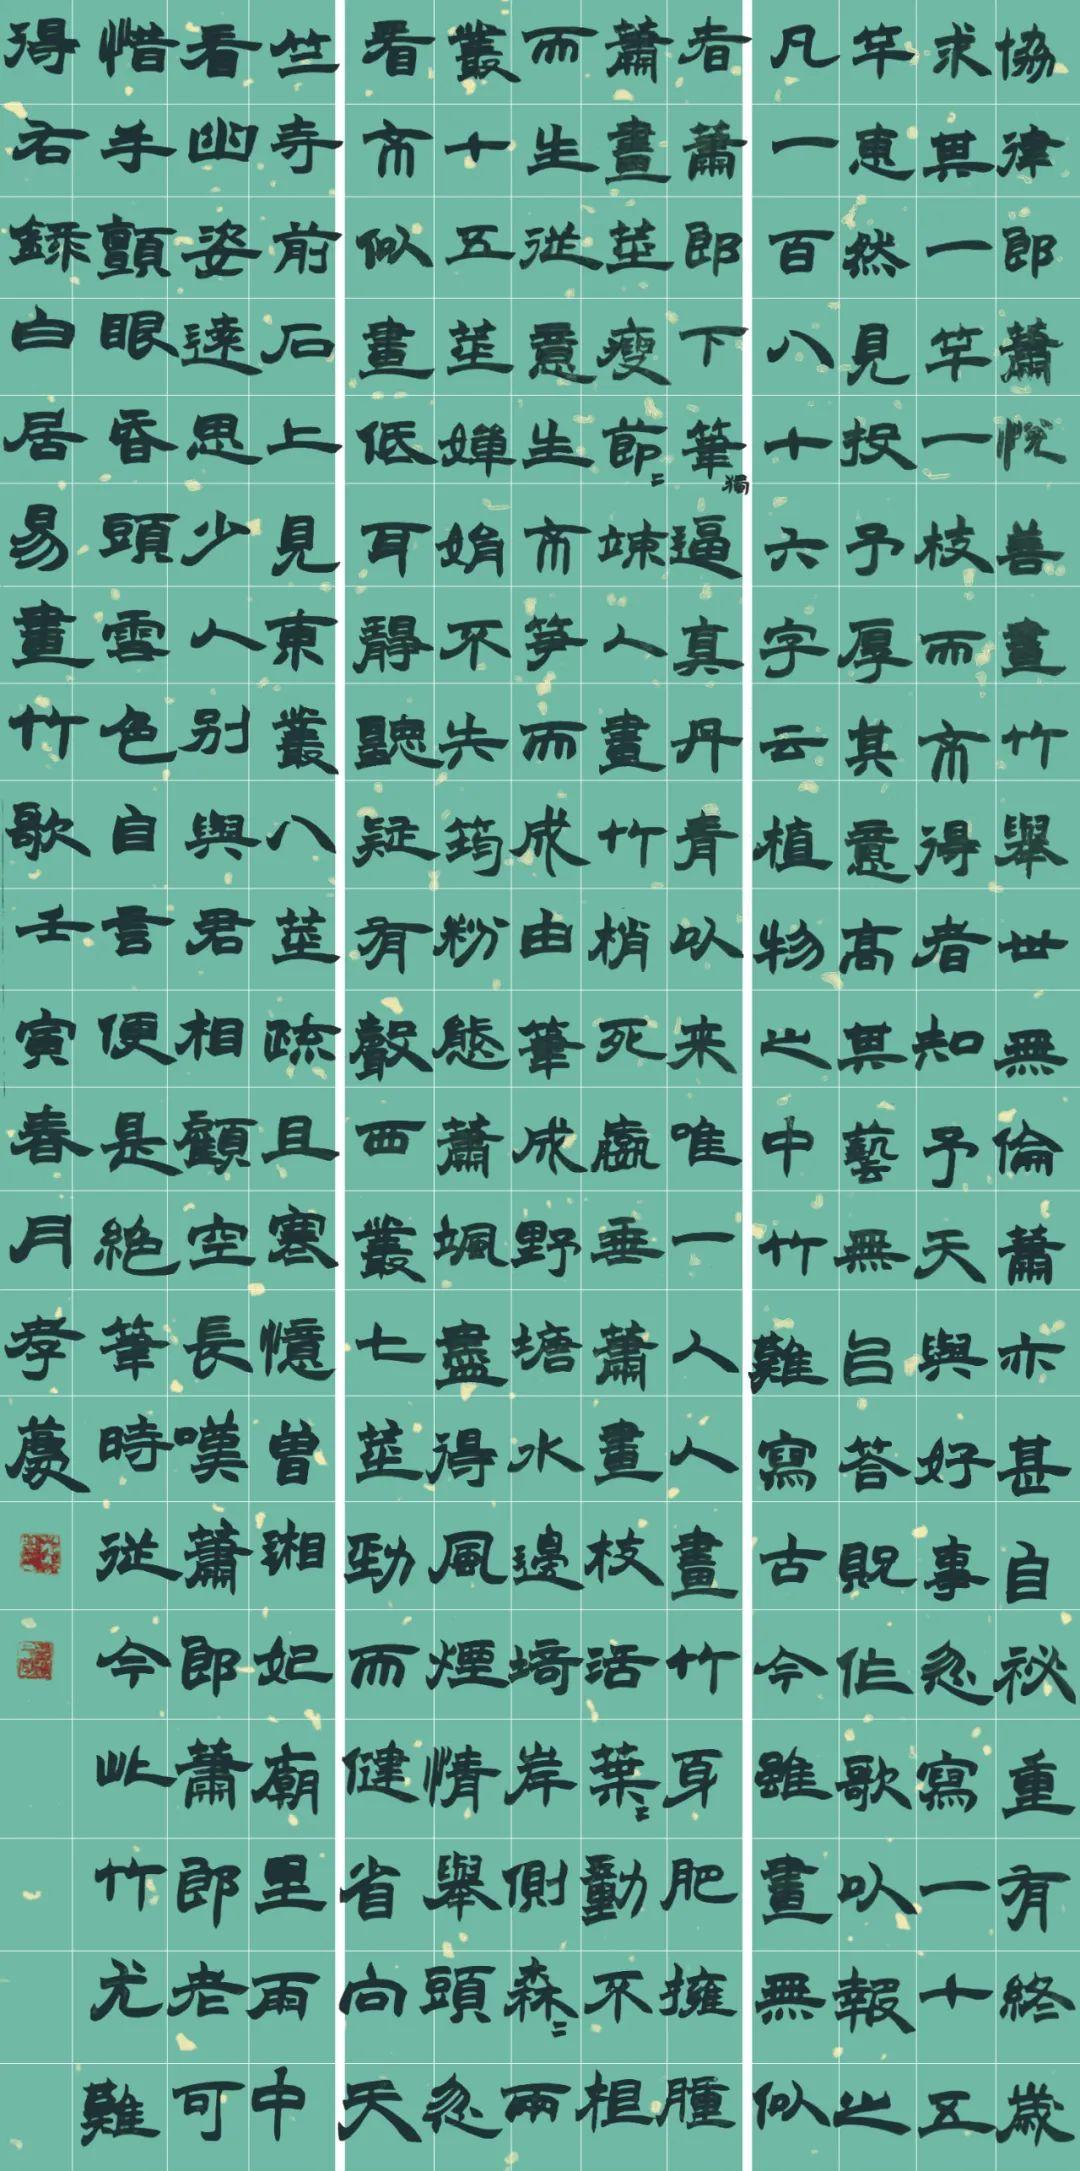 協律郎蕭悅善畫竹舉世無倫蕭亦甚自祕重有終歲
求其一竿一枝而不得者知予天與好事忽寫一十五
竿惠然見投予厚其意高其藝無㠯答貺作歌以報之
凡一百八十六字云植物之中竹難寫古今雖畫無似
者蕭郎下筆獨逼真丹青以来唯一人人畫竹身肥擁腫
蕭畫莖瘦節〻竦人畫竹梢死羸垂蕭畫枝活葉〻動不根
而生從意生不笋而成由筆成野塘水邊埼岸側森〻兩
叢十五莖嬋娟不失筠粉態蕭颯盡得風煙情舉頭忽
看不似畫低耳靜聽疑有聲西叢七莖勁而健省向天
竺寺前石上見東叢八莖疏且寒憶曾湘妃廟里雨中
看幽姿遠思少人別與君相顧空長嘆蕭郎蕭郎老可
惜手顫眼昏頭雪色自言便是絕筆時從今此竹尤難
得右錄白居易畫竹歌壬寅春月孝